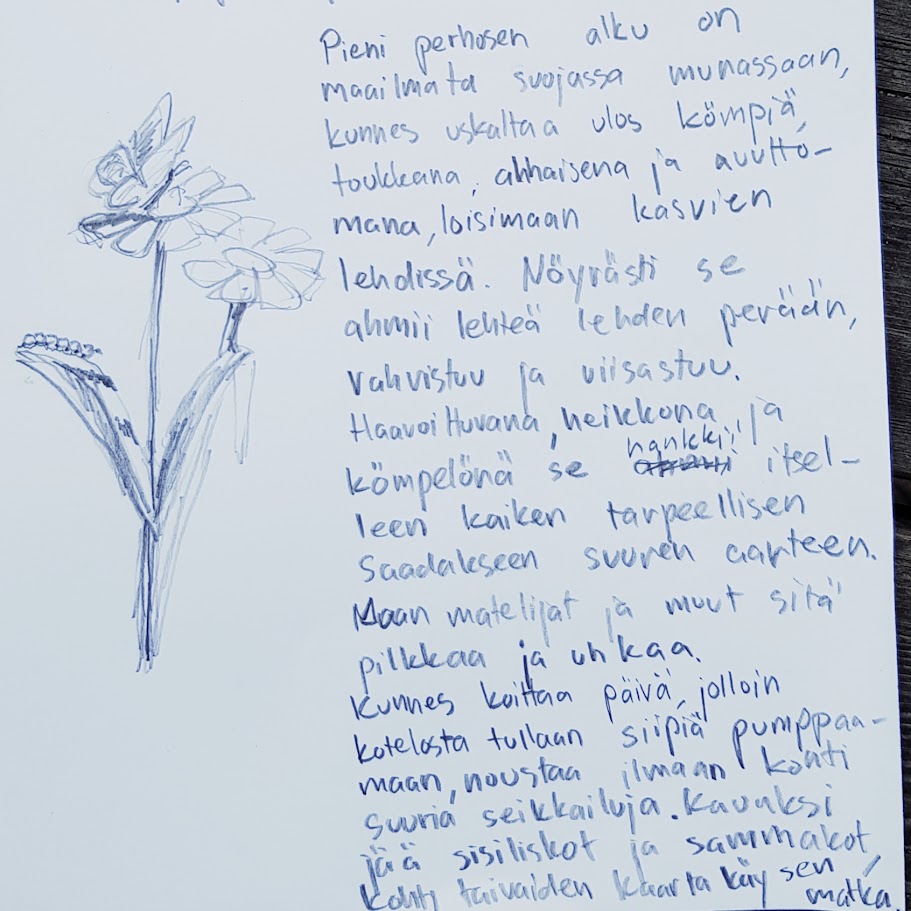 Pieni perhosen alku on
maailmata suojassa munassaan,
kunnes uskaltaa ulos kömpiä,
toukkana, ahhaisena ja avutto-
mana, loisimaan kasvien
lehdissä. Nöyrästi se
ahmii lehteä lehden perään,
vahvistuu ja viisastuu.
Haavoittuvana, heikkona ja
kömpelönä se hankkii itsel-
leen kaiken tarpeellisen
saadakseen suuren aarteen.
Maan matelijat ja muut sitä
pilkkaa ja uhkaa.
Kunnes koittaa päivä, jolloin
kotelosta tullaan siipiä pumppaa-
maan, noustaa ilmaan kohti
suuria seikkailuja. Kauaksi
jää sisiliskot ja sammakot,
kohti taivaiden kaarta käy sen
matka.